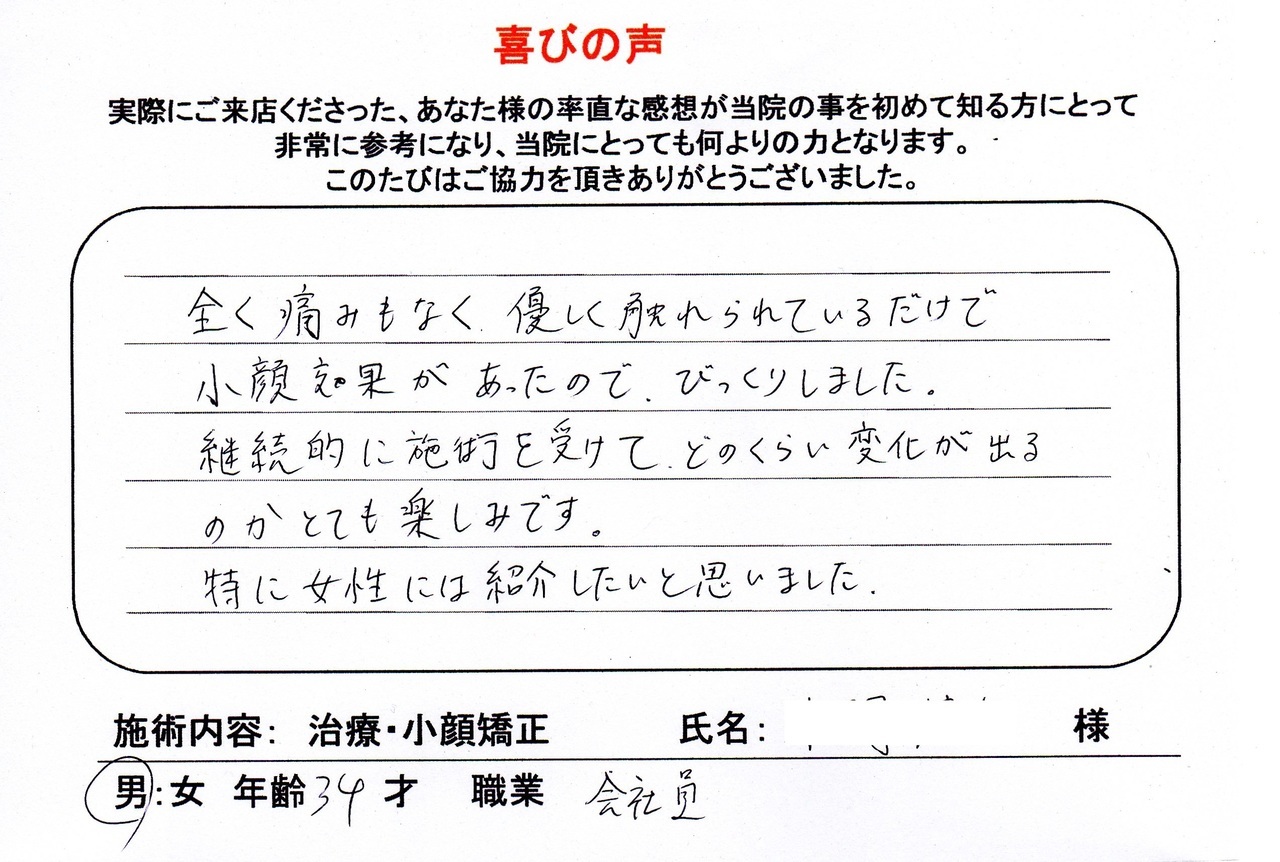 喜びの声
実際にご来店くださった、あなた様の率直な感想が当院の事を初めて知る方にとって
非常に参考になり、当院にとっても何よりの力となります。
このたびはご協力を頂きありがとうございました。
全く痛みもなく、優しく触れられているだけで
小顔効果があったので、びっくりしました。
継続的に施術を受けて、どのくらい変化が出る
のかとても楽しみです。
特に女性には紹介したいと思いました。
施術内容: 治療・小顔矯正 氏名: 様
男:女 年齢34才 職業 会社員